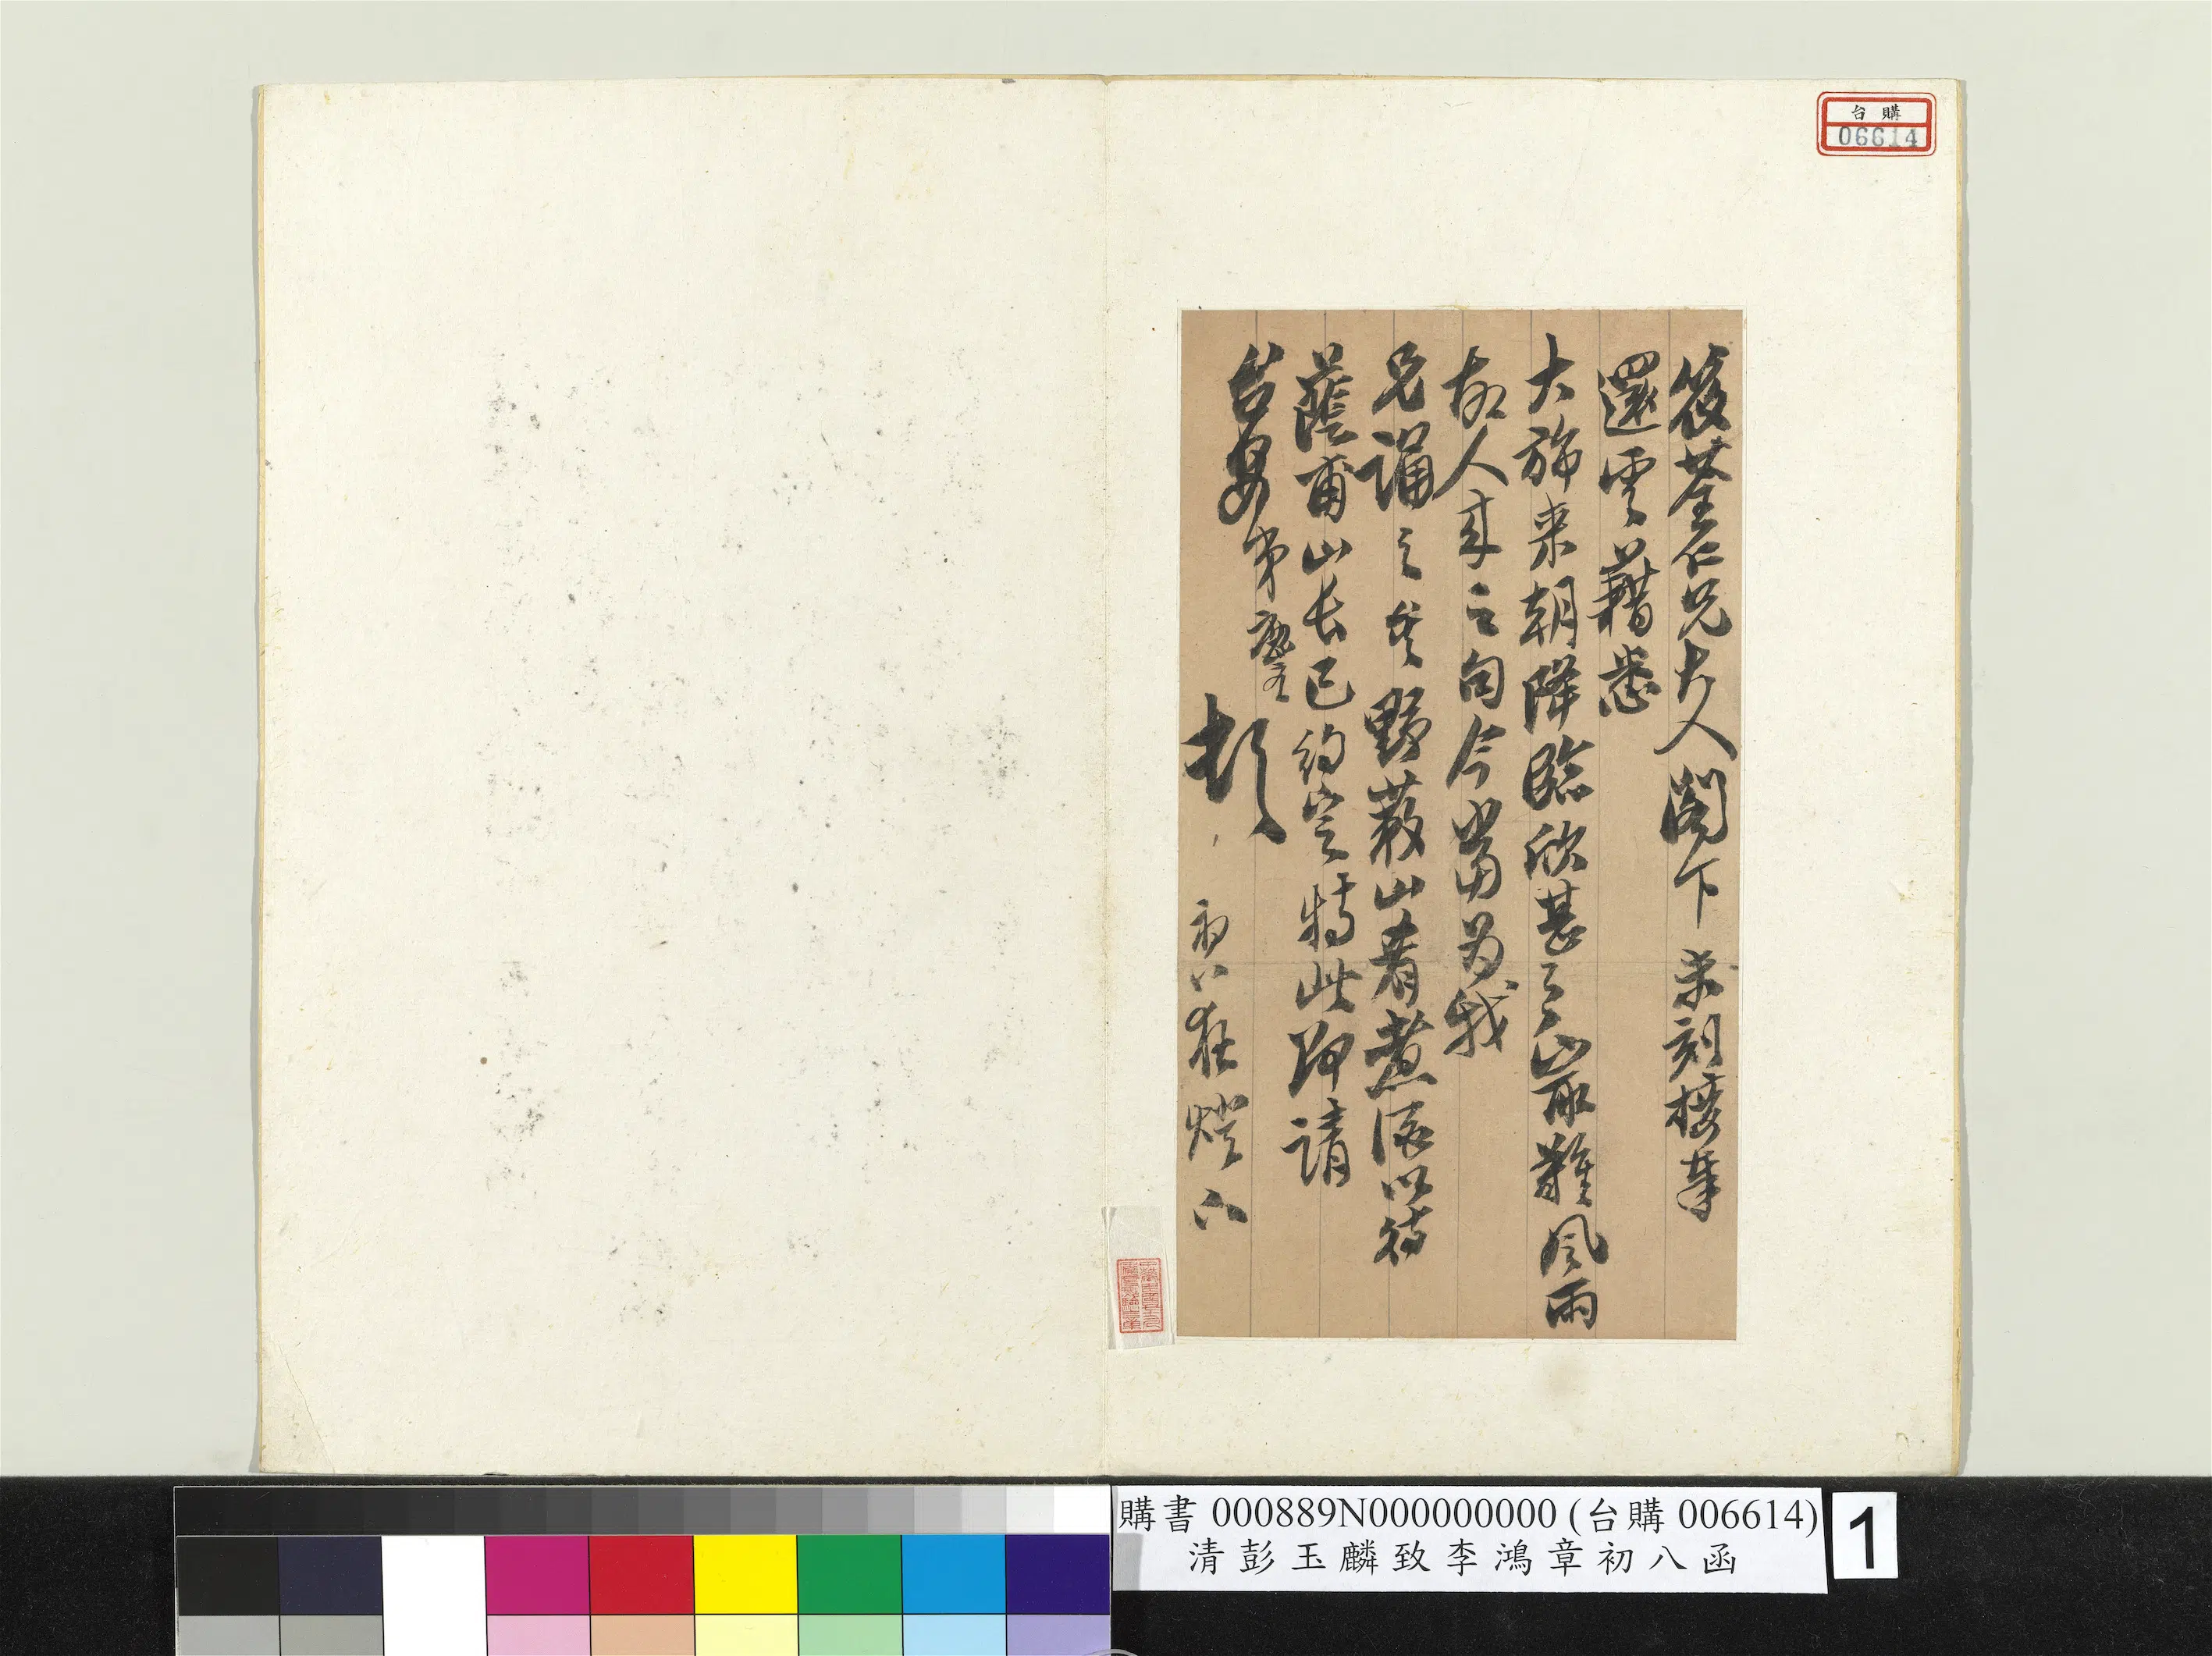 台購
06614
筱荃仁兄大人閣下 未刻接筆
還雲藉悉
大旆來朝降臨欣甚之最難風雨
故人來之句今當為我
兄誦之矣野蔌山肴煮酒以待
蔭甫山長已約定特此即請
台安弟麐頓
初八夜燈下
購書 000889N000000000 (台購 006614)
清彭玉麟致李鴻章初八函
1